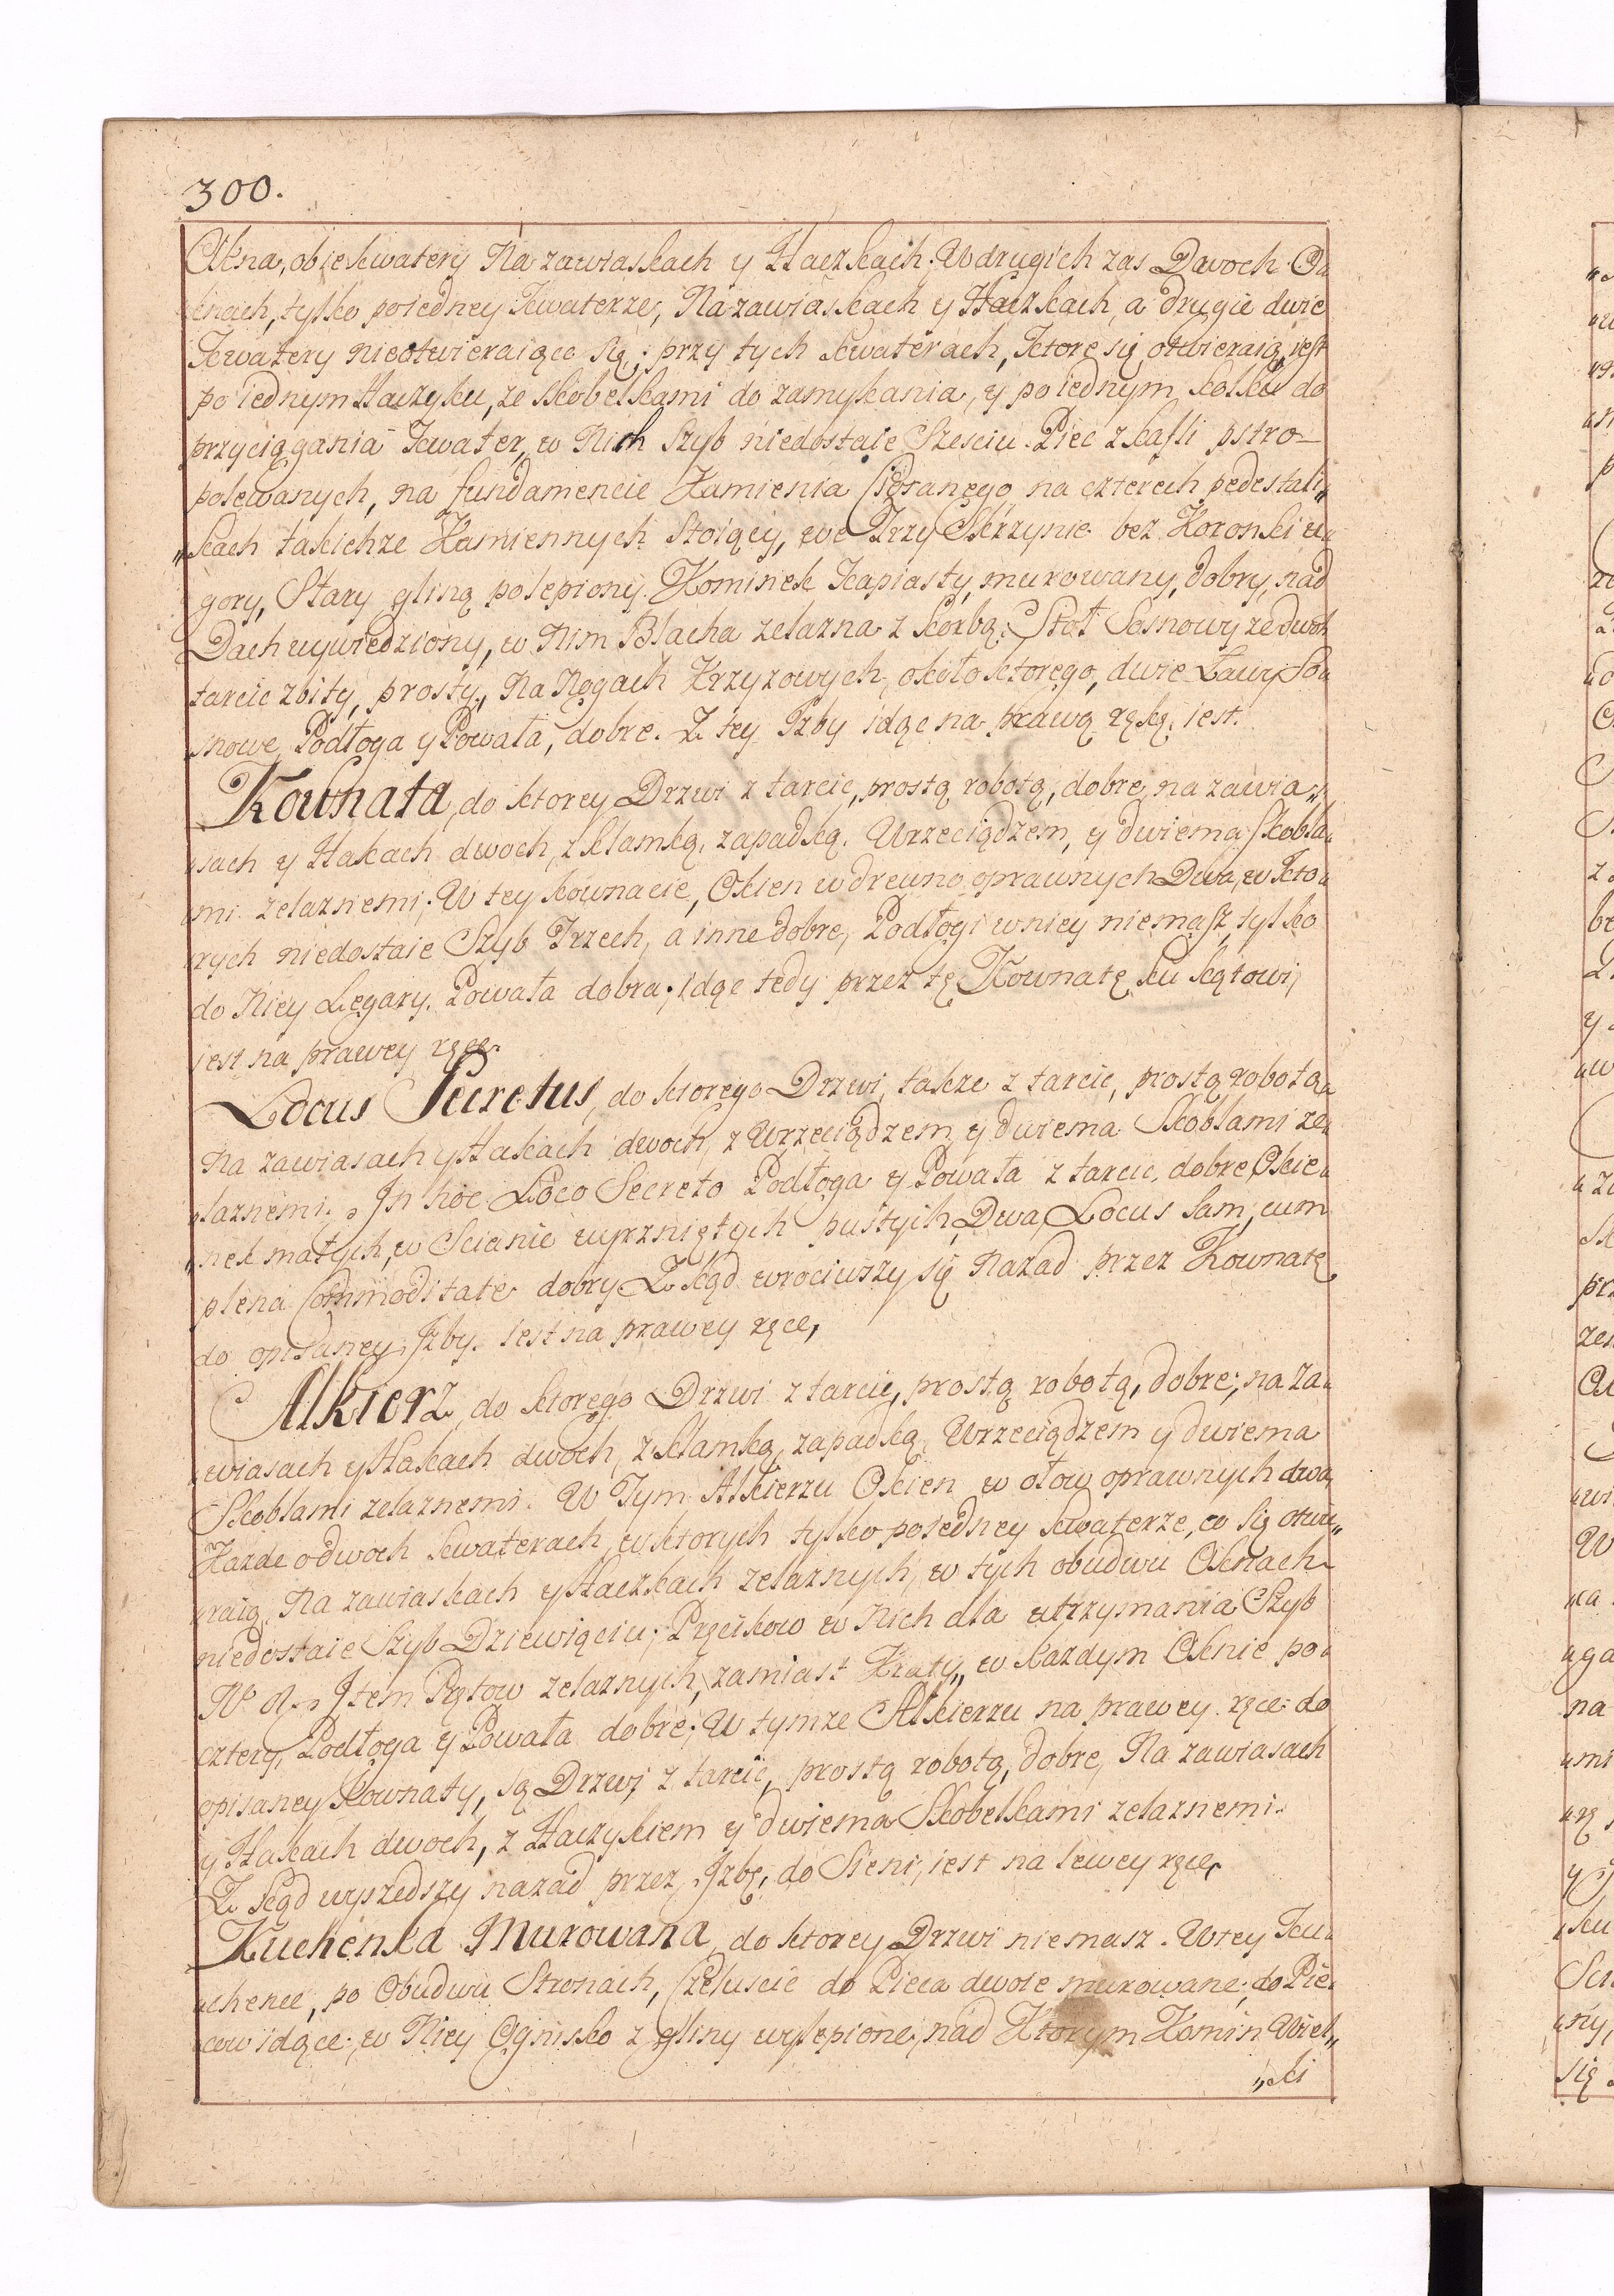 300.
Okna, obie kwatery Na zawiaskach y Haczkach. W drugich zas Dwoch O„
knach, tylko poiedney kwaterze, Na zawiaskach y Haczkach, a drugie dwie
kwatery nieotwieraiące się; przy tych kwaterach, ktore się otwieraią, iest
po iednym Haczyku, ze skobelkami do zamykania, y po iednym kołku do
przyciągania kwater, w Nich Szyb niedostaie Szesciu. Piec z kafli pstro–
polewanych, na fundamencie Kamienia Ciosanego, na czterech pedestali„
„kach takichze Kamiennych Stoiący, we Trzy Skrzynie bez Koronki u„
gory, Stary gliną polepiony. Kominek kapiasty, murowany, dobry, nad
Dach wywiedziony, w Nim Blacha zelazna z korbą. Stoł Sosnowy ze dwoch
tarcic zbity, prosty, Na Nogach Krzyzowych, około ktorego, dwie Ławy So„
snowe, Podłoga y Powała, dobre. Z tey Izby idąc na prawą rękę, iest.
Kownata, do ktorey Drzwi z tarcic, prostą robotą, dobre, na zawia„
„sach y Hakach dwoch, z klamką, zapadką, Wrzeciądzem, y dwiema Skobla„
„mi zelaznemi; W tey kownacie, Okien w drewno oprawnych Dwa, w kto„
„rych niedostaie Szyb Trzech, a inne dobre, Podłogi w niey niemasz, tylko
do Niey Legary. Powała dobra; idąc tedy przez tę Kownatę ku kątowi,
iest na prawey ręce.
Locus Secretus, do ktorego Drzwi, takze z tarcic, prostą robotą„
na zawiasach y Hakach dwoch, z Wrzeciądzem y dwiema Skoblami ze„
„laznemi. In hoc Loco Secreto Podłoga y Powała z tarcic, dobre, Okie„
„nek małych, w Scianie wyrzniętych pustych, Dwa, Locus sam, cum
plena Commoditate dobry. Z kąd wrociwszy się Nazad przez Kownatę
do opisaney Izby. iest na prawey ręce,
Alkierz, do ktorego Drzwi z tarcic, prostą robotą, dobre, na za„
„wiasach y Hakach dwoch, z klamką, zapadką, Wrzeciądzem y dwiema
Skoblami zelaznemi. W Tym Alkierzu Okien w ołow oprawnych dwa,
Kazde o dwoch kwaterach, w ktorych tylko poiedney kwaterze, co się otwi„
„raią, Na zawiaskach y Haczkach zelaznych, w tych obudwu Oknach
niedostaie Szyb Dziewięciu; Pręcikow w Nich dla utrzymania Szyb
Item Prętow zelaznych, zamiast Kraty, w kazdym Oknie po„
cztery, Podłoga y Powała dobre; W tymze Alkierzu na prawey ręce do
opisaney kownaty, są Drzwi z tarcic, prostą robotą, dobre, Na zawiasach
y Hakach dwoch, z Haczykiem y dwiema Skobelkami zelaznemi.
Z kąd wyszedszy nazad przez Izbę, do Sieni, iest na lewey ręce,
Kuchenka Murowana, do ktorey Drzwi niemasz. W tey ku„
„chence, po Obudwu Stronach, Czeluscie do Pieca dwoie murowane, do Pie„
„cow idące; w Niey Ognisko z gliny wylepione, nad Ktorym Komin Wiel„
„ki